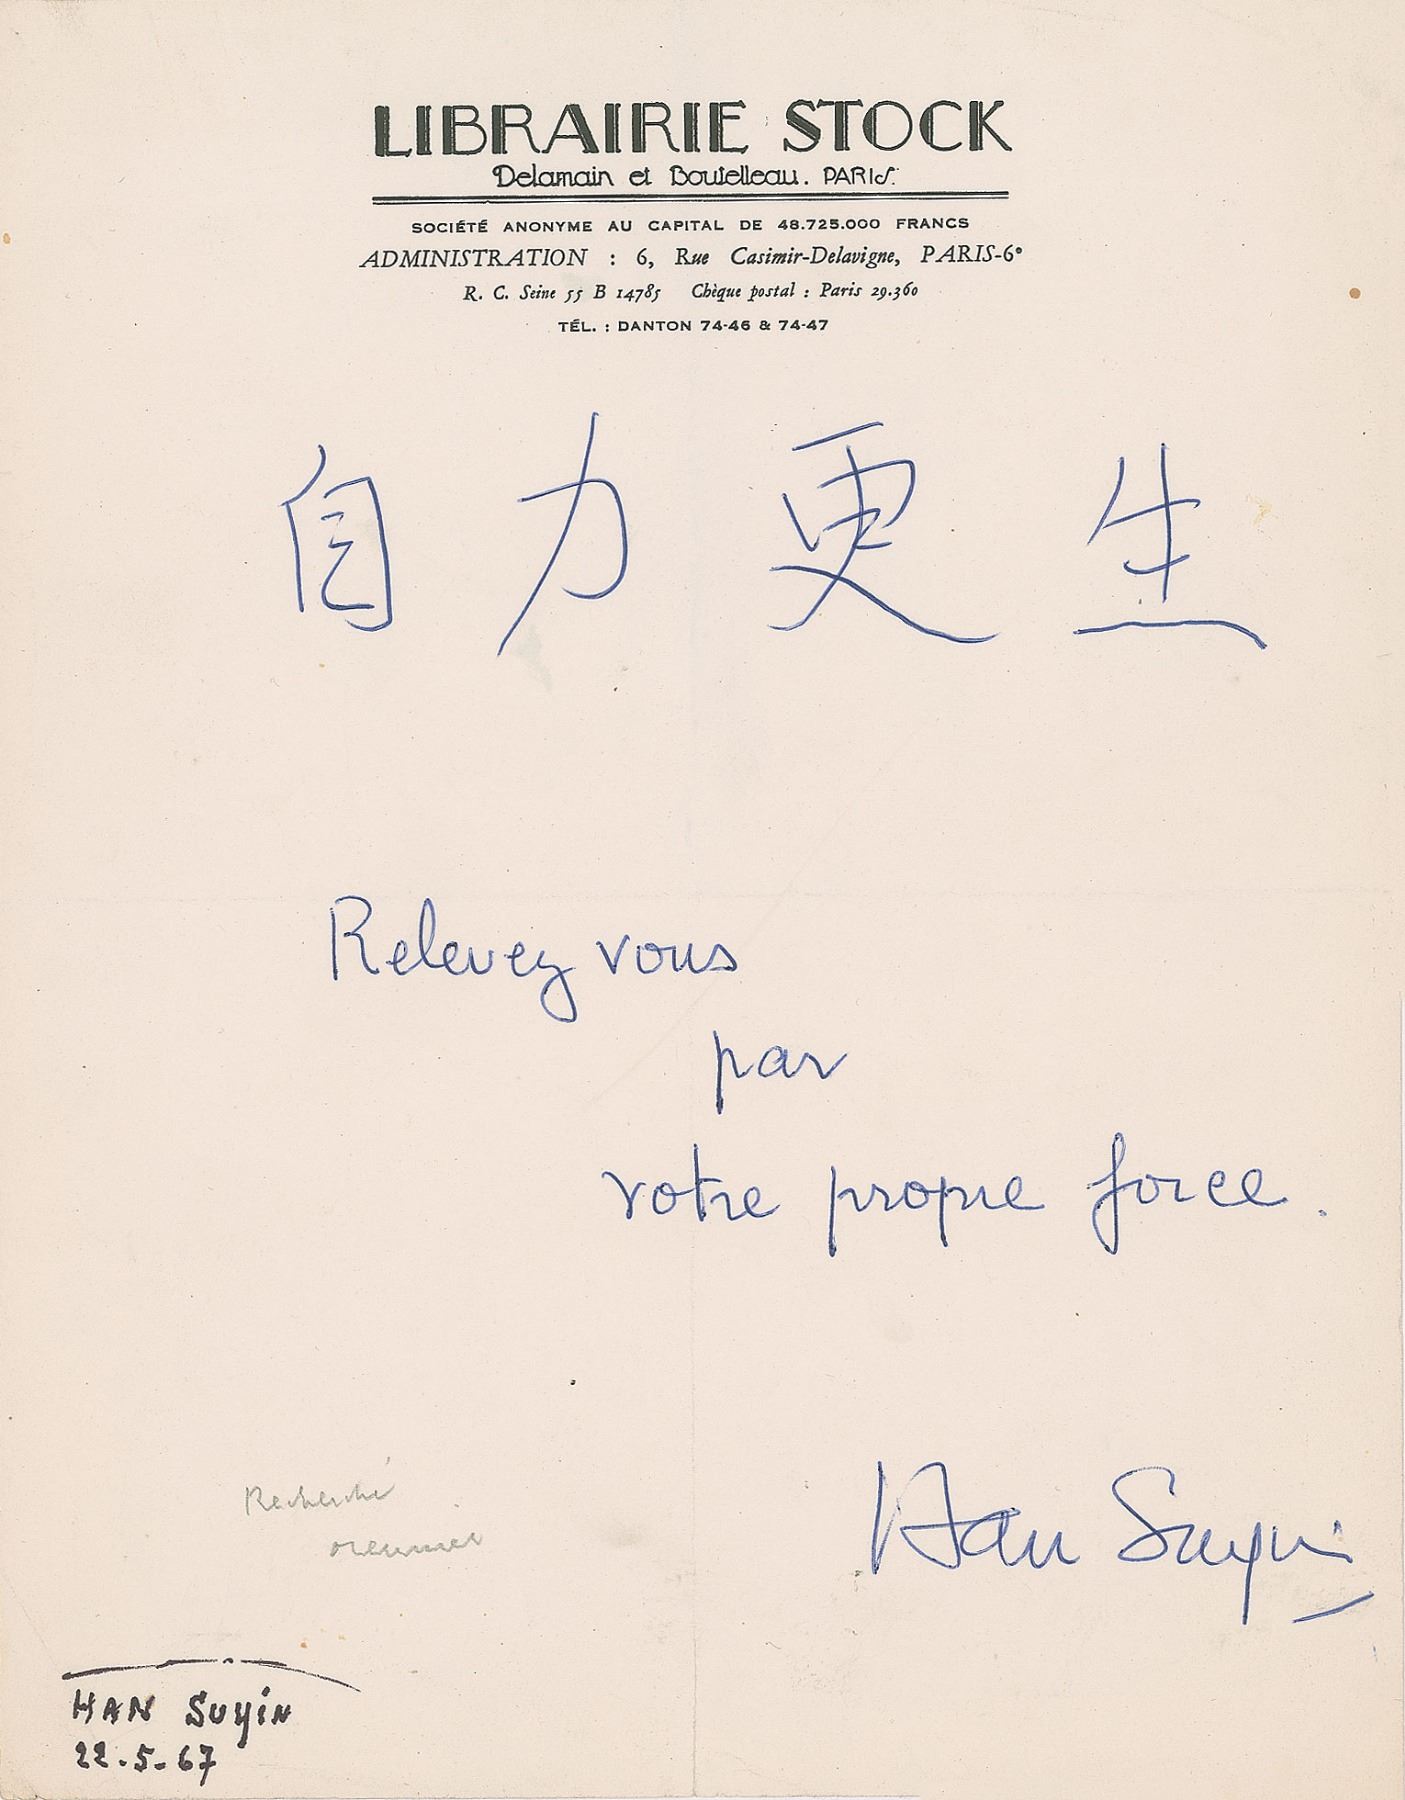 LIBRAIRIE STOCK
Delamain et Boutelleau. PARIS.
SOCIÉTÉ ANONYME AU CAPITAL DE 48.725.000 FRANCS
ADMINISTRATION : 6, Rue Casimir-Delavigne, PARIS-6e
R. C. Seine 55 B 14785 Chèque postal : Paris 29.360
TÉL. : DANTON 74-46 & 74-47
自力更生
Relevez vous
par
votre propre force.
Han Suyin
HAN SUYIN
22.5-67